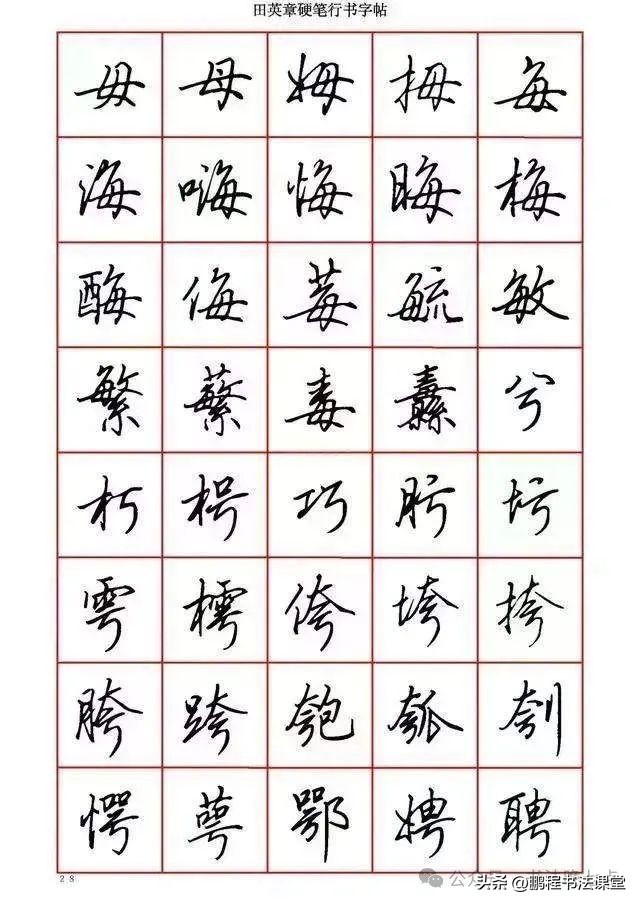 田英章硬笔行书字帖
毋 母 姆 拇 每
海 嗨 悔 晦 梅
酶 侮 莓 毓 敏
繁 蘩 毒 纛 兮
朽 枵 巧 肟 圬
雩 樗 侉 垮 挎
胯 跨 匏 瓠 刳
愕 萼 鄂 娉 聘
28
头条 @鹏程书法课堂